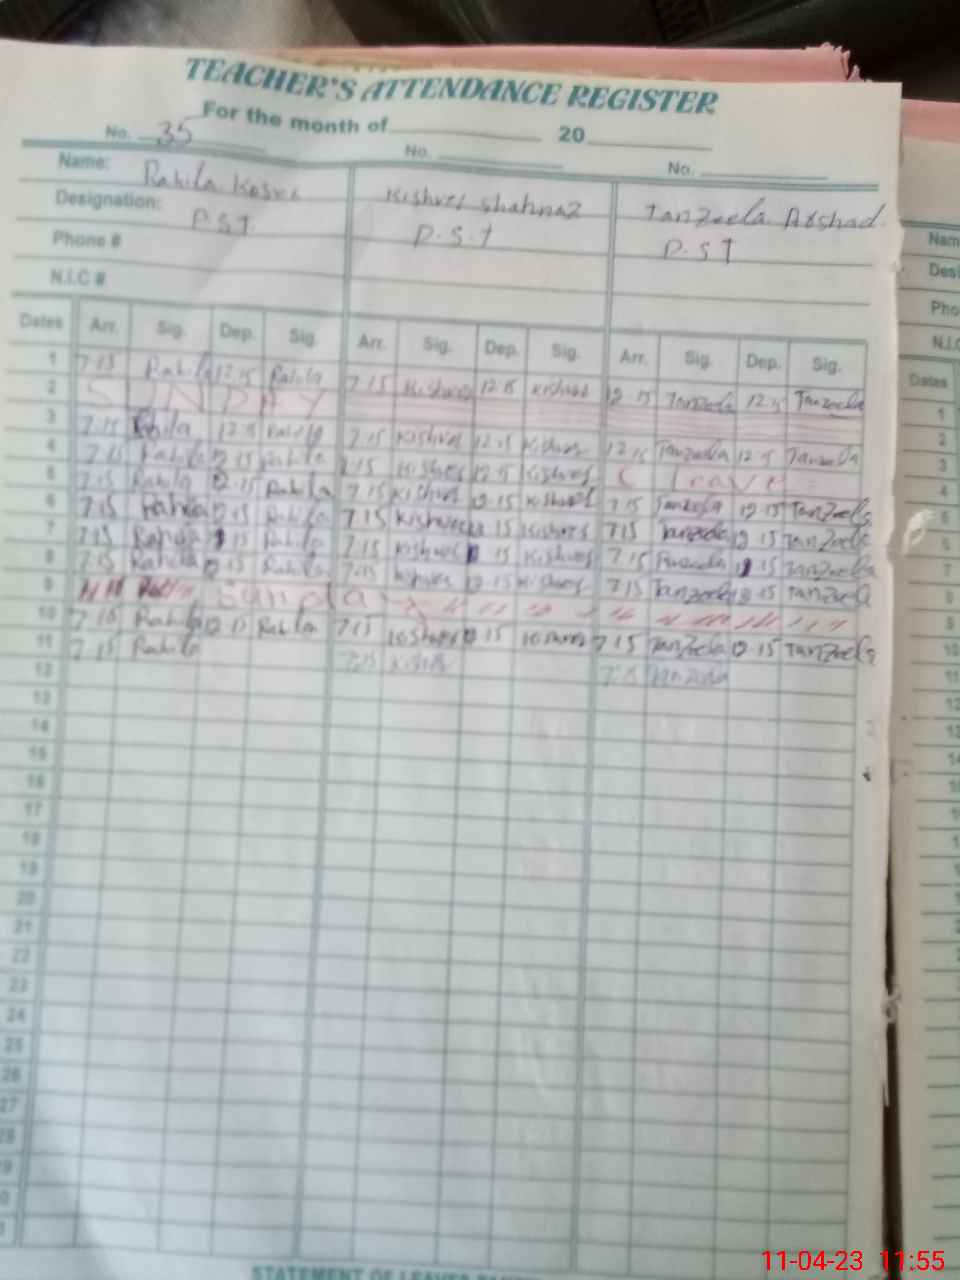 TEACHER'S ATTENDANCE REGISTER
For the month of 20
No. 35 No. No.
Name: Rahila Kishver Shahnaz Tanzeela Arshad Nam
Designation: P.S.T P.S.T P.S.T Desi
Phone # Pho
N.I.C # N.I.C
Dates Arr. Sig. Dep. Sig. Arr. Sig. Dep. Sig. Arr. Sig. Dep. Sig. Dates
1 7.15 Rahila 12.15 Rahila 7.15 Kishver 12.15 Kishver 12.15 Tanzeela 12.15 Tanzeela 1
2 SUNDAY 2
3 7.15 Rahila 12.15 Rahila 7.15 Kishver 12.15 Kishver 12.15 Tanzeela 12.15 Tanzeela 3
4 7.15 Rahila 12.15 Rahila 7.15 Kishver 12.15 Kishver C Leave 4
5 7.15 Rahila 12.15 Rahila 7.15 Kishver 12.15 Kishver 7.15 Tanzeela 12.15 Tanzeela 5
6 7.15 Rahila 12.15 Rahila 7.15 Kishver 12.15 Kishver 7.15 Tanzeela 12.15 Tanzeela 6
7.15 Rahila 12.15 Rahila 7.15 Kishver 12.15 Kishver 7.15 Tanzeela 12.15 Tanzeela 7
8 7.15 Rahila 12.15 Rahila 7.15 Kishver 12.15 Kishver 7.15 Tanzeela 12.15 Tanzeela 8
9 Sunday 9
10 7.15 Rahila 12.15 Rahila 7.15 Kishver 12.15 Kishver 7.15 Tanzeela 12.15 Tanzeela 10
11 7.15 Rahila 7.15 Kishver 7.15 Tanzeela 11
12 12
13 13
14 14
15
16
17
18
19
20
21
22
23
24
25
26
27
28
29
0
1
STATEMENT OF LEAVES
11-04-23 11:55